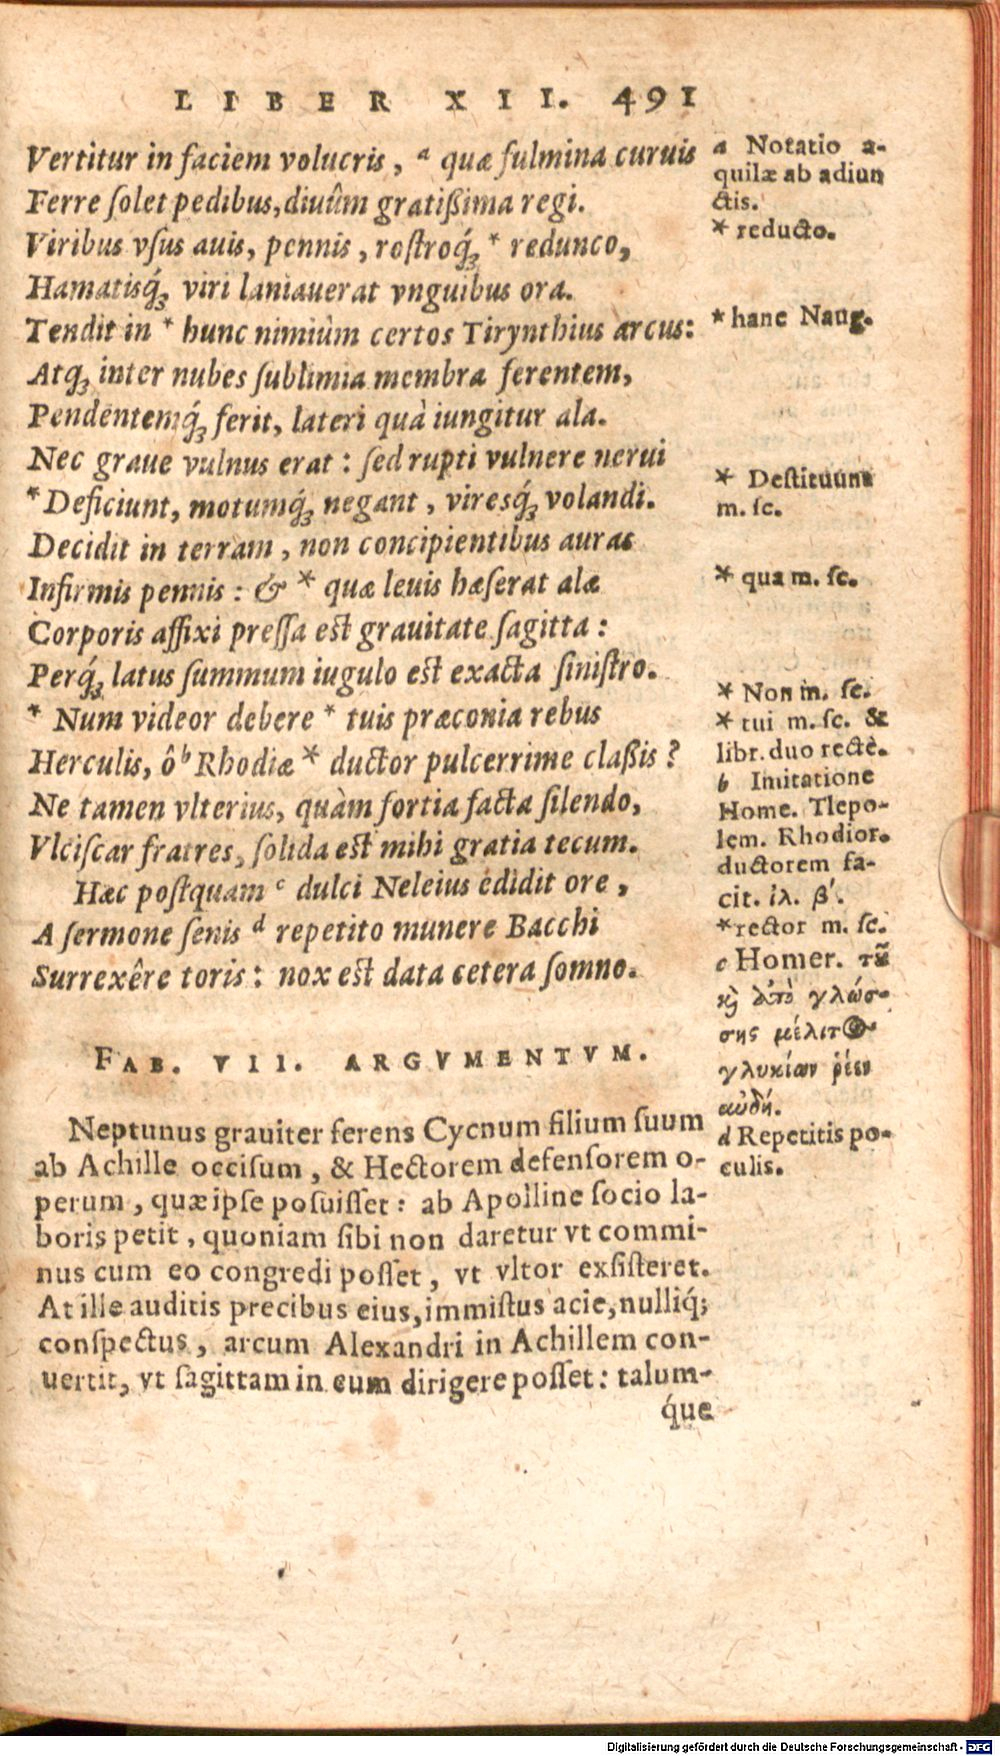 LIBER XII. 491
Vertitur in faciem volucris, ª quæ fulmina curuis
Ferre ſolet pedibus, diuûm gratißima regi.
Viribus vſus auis, pennis, roſtroq́; * redunco,
Hamatisq́; viri laniauerat vnguibus ora.
Tendit in * hunc nimiùm certos Tirynthius arcus:
Atq; inter nubes ſublimia membra ferentem,
Pendentemq́; ferit, lateri quà iungitur ala.
Nec graue vulnus erat: ſed rupti vulnere nerui
* Deficiunt, motumq́; negant, viresq́; volandi.
Decidit in terram, non concipientibus auras
Infirmis pennis: & * quæ leuis hæſerat alæ
Corporis affixi preſſa eſt grauitate ſagitta:
Perq́; latus ſummum iugulo eſt exacta ſiniſtro.
* Num videor debere * tuis præconia rebus
Herculis, ô ᵇ Rhodiæ * ductor pulcerrime claßis?
Ne tamen vlterius, quàm fortia facta ſilendo,
Vlciſcar fratres, ſolida eſt mihi gratia tecum.
Hæc poſtquam ᶜ dulci Neleius edidit ore,
A ſermone ſenis ᵈ repetito munere Bacchi
Surrexêre toris: nox eſt data cetera ſomno.
FAB. VII. ARGVMENTVM.
Neptunus grauiter ferens Cycnum filium ſuum
ab Achille occiſum, & Hectorem defenſorem o-
perum, quæ ipſe poſuiſſet: ab Apolline ſocio la-
boris petit, quoniam ſibi non daretur vt commi-
nus cum eo congredi poſſet, vt vltor exſiſteret.
At ille auditis precibus eius, immiſtus acie, nulliq́;
conſpectus, arcum Alexandri in Achillem con-
uertit, vt ſagittam in eum dirigere poſſet: talum-
q́ue
a Notatio a-
quilæ ab adiun
ctis.
* reducto.
* hanc Naug.
* Deſtituunt
m. ſc.
* qua m. ſc.
* Non m. ſc.
* tui m. ſc. &
libr. duo rectè.
b Imitatione
Home. Tlepo-
lem. Rhodior.
ductorem fa-
cit. ἰλ. β΄.
* rector m. ſc.
c Homer. τοῦ
καὶ ἀπὸ γλώσ-
σης μέλιτος
γλυκίων ῥέεν
αὐδή.
d Repetitis po-
culis.
Digitalisierung gefördert durch die Deutsche Forschungsgemeinschaft - DFG